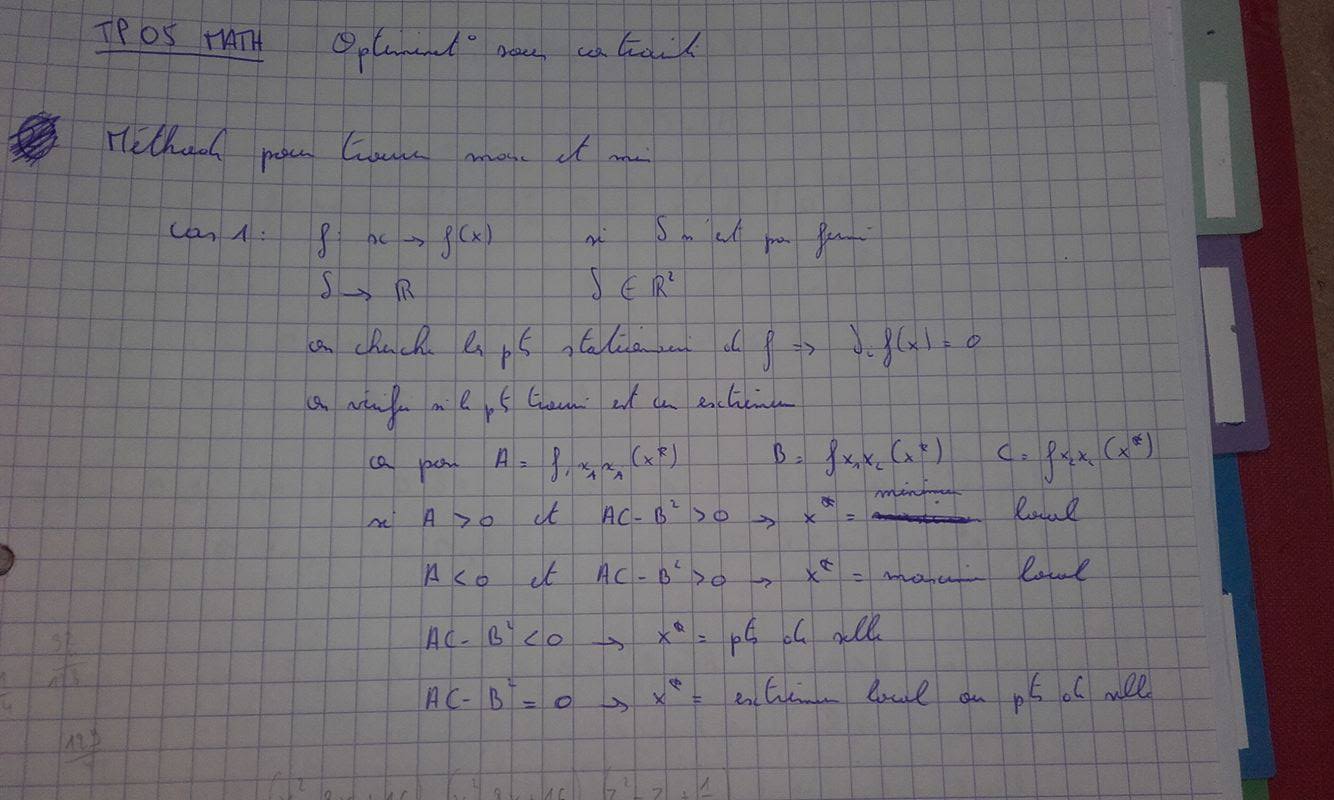 TP 05 MATH Optimisat° sous contrainte
Méthode pour trouver max et min
Cas 1 : f : x → f(x) si S n'est pas fermé
S → ℝ S ∈ ℝ²
on cherche les pts stationnaires de f => ∂i f(x) = 0
on vérifie si le pts trouvé est un extrémum
on pose A = f, x₁ x₁ (x*) B = f x₁ x₂ (x*) C = f x₂ x₂ (x*)
si A > 0 et AC - B² > 0 → x* = minimum local
A < 0 et AC - B² > 0 → x* = maximum local
AC - B² < 0 → x* = pts de selle
AC - B² = 0 → x* = extrémum local ou pts de selle